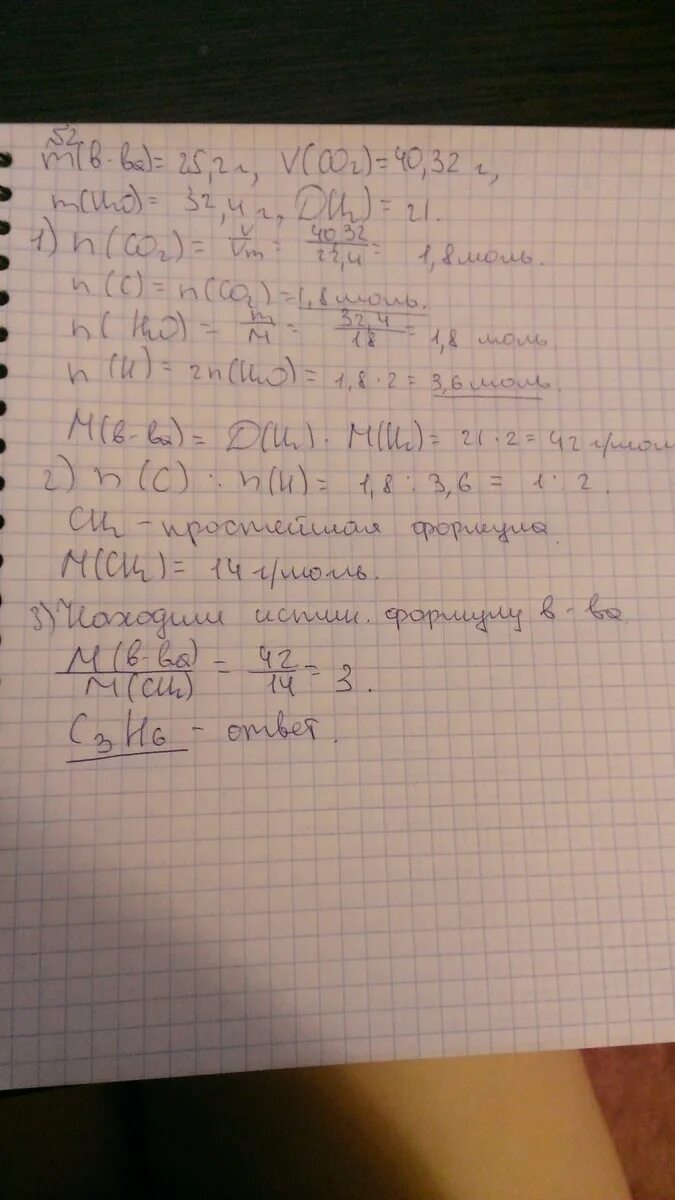 №2
m(в-ва)= 25,2 г, V(CO₂)=40,32 г,
m(H₂O)= 32,4 г, D(H₂)= 21.
1) n(CO₂)= V/Vm = 40,32/22,4 = 1,8 моль.
n(C)=n(CO₂)=1,8 моль.
n(H₂O)= m/M = 32,4/18 = 1,8 моль
n(H)= 2n(H₂O)= 1,8·2= 3,6 моль.
M(в-ва)= D(H₂)· M(H₂)= 21·2= 42 г/мол
2) n(C):n(H)= 1,8:3,6= 1:2.
CH₂ - простейшая формула
M(CH₂)= 14 г/моль.
3) Находим истин. формулу в-ва
M(в-ва)/M(CH₂) = 42/14 = 3.
C₃H₆ - ответ.